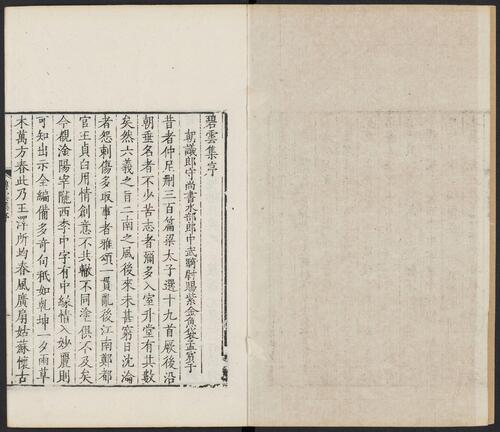 碧雲集序
朝議郎守尚書水部郎中武騎尉賜紫金魚袋孟賓于
昔者仲尼刪三百篇梁太子選十九首厥後沿
朝垂名者不少苦志者彌多入室升堂有其數
矣然六義之旨二南之風後來未甚窮日沈淪
者怨刺傷多取事者雅頌一貫亂後江南鄭都
官王貞白用情創意不共轍不同塗俱不及矣
今覩淦陽宰隴西李中字有中緣情入妙麗則
可知出示全編備多奇句秖如乾坤一夕雨草
木萬方春此乃王澤所均春風廣扇姑蘇懷古